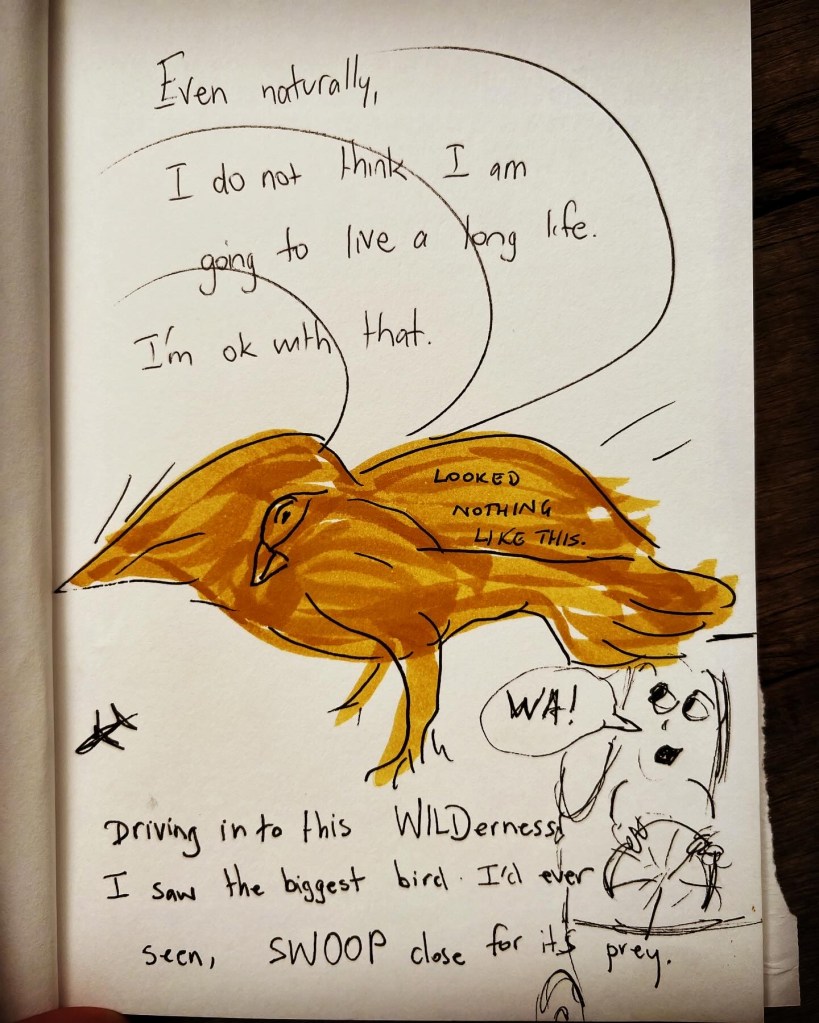 Even naturally,
I do not think I am
going to live a long life.
I'm ok with that.
LOOKED
NOTHING
LIKE THIS.
WA!
Driving in to this WILDerness
I saw the biggest bird I'd ever
seen, SWOOP close for it's prey.